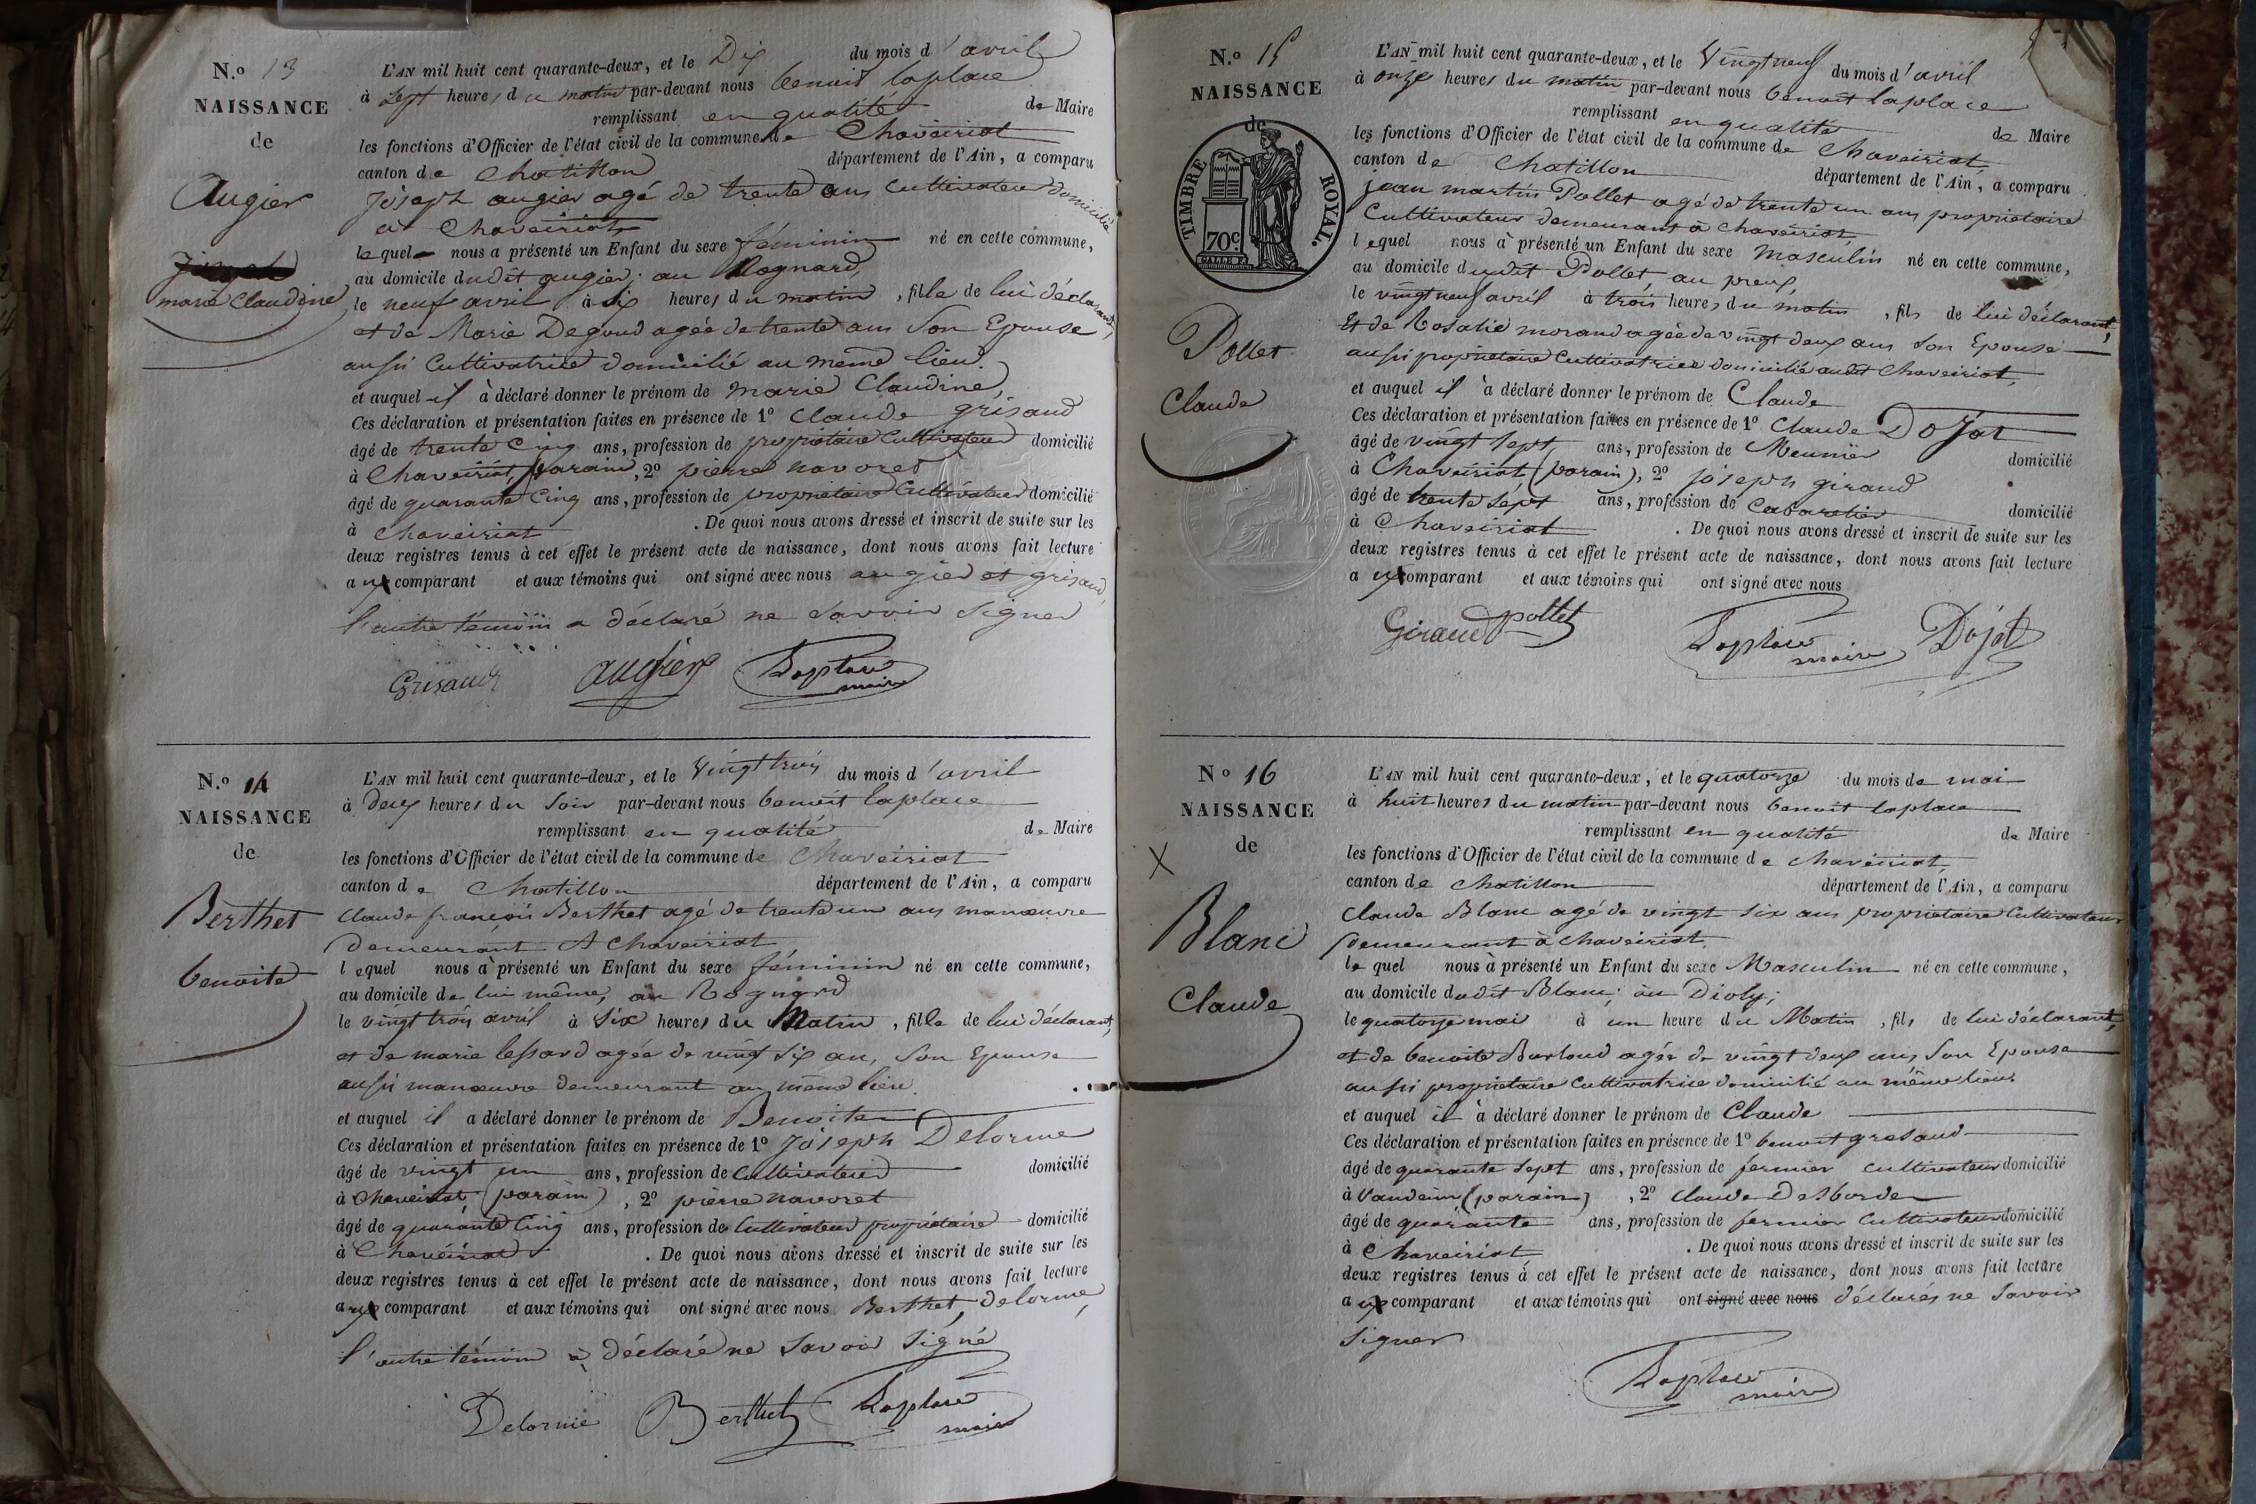 N.º 13
NAISSANCE
de
Augier
marie Claudine
L'AN mil huit cent quarante-deux, et le Dix du mois d'avril
à sept heures du matin par-devant nous benoit laplace
remplissant en qualité de Maire
les fonctions d'Officier de l'état civil de la commune de Chaveiriat
canton de Chatillon département de l'Ain, a comparu
joseph augier agé de trente ans cultivateur domicilié
à Chaveiriat
lequel nous a présenté un Enfant du sexe féminin né en cette commune,
au domicile dudit augier, au Rognard,
le neuf avril à six heures du matin, fille de lui déclarant,
et de Marie Degoud agée de trente ans Son Epouse
aussi Cultivatrice domicilié au même lieu.
et auquel il à déclaré donner le prénom de marie Claudine,
Ces déclaration et présentation faites en présence de 1º Claude grisaud
âgé de trente Cinq ans, profession de propriétaire Cultivateur domicilié
à Chaveiriat, parain, 2º pierre navoret
âgé de quarante Cinq ans, profession de propriétaire Cultivateur domicilié
à Chaveiriat. De quoi nous avons dressé et inscrit de suite sur les
deux registres tenus à cet effet le présent acte de naissance, dont nous avons fait lecture
aux comparant et aux témoins qui ont signé avec nous augier et grisaud,
l'autre témoin a déclaré ne Savoir Signer
Grisaud augier Laplace
maire
N.º 14
NAISSANCE
de
Berthet
benoite
L'AN mil huit cent quarante-deux, et le Vingt trois du mois d'avril
à deux heures du Soir par-devant nous benoit laplace
remplissant en qualité de Maire
les fonctions d'Officier de l'état civil de la commune de Chaveiriat
canton de Chatillon département de l'Ain, a comparu
Claude françois Berthet agé de trente un ans manœuvre
demeurant A Chaveiriat
lequel nous à présenté un Enfant du sexe féminin né en cette commune,
au domicile de lui même, au Rognard
le vingt trois avril à six heures du Matin, fille de lui déclarant,
et de marie lessard agée de vingt six ans, Son Epouse
aussi manœuvre demeurant au même lieu.
et auquel il a déclaré donner le prénom de Benoite
Ces déclaration et présentation faites en présence de 1º joseph Delorme
âgé de vingt un ans, profession de Cultivateur domicilié
à Chaveiriat (parain), 2º pierre navoret
âgé de quarante Cinq ans, profession de Cultivateur propriétaire domicilié
à Chaveiriat. De quoi nous avons dressé et inscrit de suite sur les
deux registres tenus à cet effet le présent acte de naissance, dont nous avons fait lecture
aux comparant et aux témoins qui ont signé avec nous Berthet, delorme,
l'autre témoin à déclaré ne Savoir Signé
Delorme Berthet Laplace
maire
N.º 15
NAISSANCE
de
TIMBRE ROYAL.
70c
Pollet
Claude
L'AN mil huit cent quarante-deux, et le Vingt neuf du mois d'avril
à onze heures du matin par-devant nous benoit laplace
remplissant en qualité de Maire
les fonctions d'Officier de l'état civil de la commune de Chaveiriat
canton de Chatillon département de l'Ain, a comparu
jean martin Pollet agé de trente un ans propriétaire
Cultivateur demeurant à Chaveiriat
lequel nous à présenté un Enfant du sexe Masculin né en cette commune,
au domicile dudit Pollet au preux,
le vingt neuf avril à trois heures du matin, fils de lui déclarant,
Et de Rosalie morand agée de vingt deux ans Son Epouse
aussi propriétaire Cultivatrice domicilié audit Chaveiriat,
et auquel il à déclaré donner le prénom de Claude
Ces déclaration et présentation faites en présence de 1º Claude Dojat
âgé de vingt sept ans, profession de Meunier domicilié
à Chaveiriat (parain), 2º joseph giraud
âgé de trente sept ans, profession de Cabaretier domicilié
à Chaveiriat. De quoi nous avons dressé et inscrit de suite sur les
deux registres tenus à cet effet le présent acte de naissance, dont nous avons fait lecture
aux comparant et aux témoins qui ont signé avec nous
Giraud pollet Laplace Dojat
maire
Nº 16
NAISSANCE
de
Blanc
Claude
L'AN mil huit cent quarante-deux, et le quatorze du mois de mai
à huit heures du matin par-devant nous benoit laplace
remplissant en qualité de Maire
les fonctions d'Officier de l'état civil de la commune de Chaveiriat,
canton de Chatillon département de l'Ain, a comparu
Claude Blanc agé de vingt six ans propriétaire Cultivateur
demeurant à Chaveiriat,
lequel nous à présenté un Enfant du sexe Masculin né en cette commune,
au domicile dudit Blanc, au Dioly;
le quatorze mai à un heure du Matin, fils de lui déclarant,
et de benoite Barloud agée de vingt deux ans Son Epouse
aussi propriétaire Cultivatrice domicilié au même lieu
et auquel il à déclaré donner le prénom de Claude
Ces déclaration et présentation faites en présence de 1º benoit gresaud
âgé de quarante sept ans, profession de fermier cultivateur domicilié
à Vandeins (parain), 2º Claude Desborde
âgé de quarante ans, profession de fermier Cultivateur domicilié
à Chaveiriat. De quoi nous avons dressé et inscrit de suite sur les
deux registres tenus à cet effet le présent acte de naissance, dont nous avons fait lecture
aux comparant et aux témoins qui ont signé avec nous déclarés ne Savoir
Signer
Laplace
maire